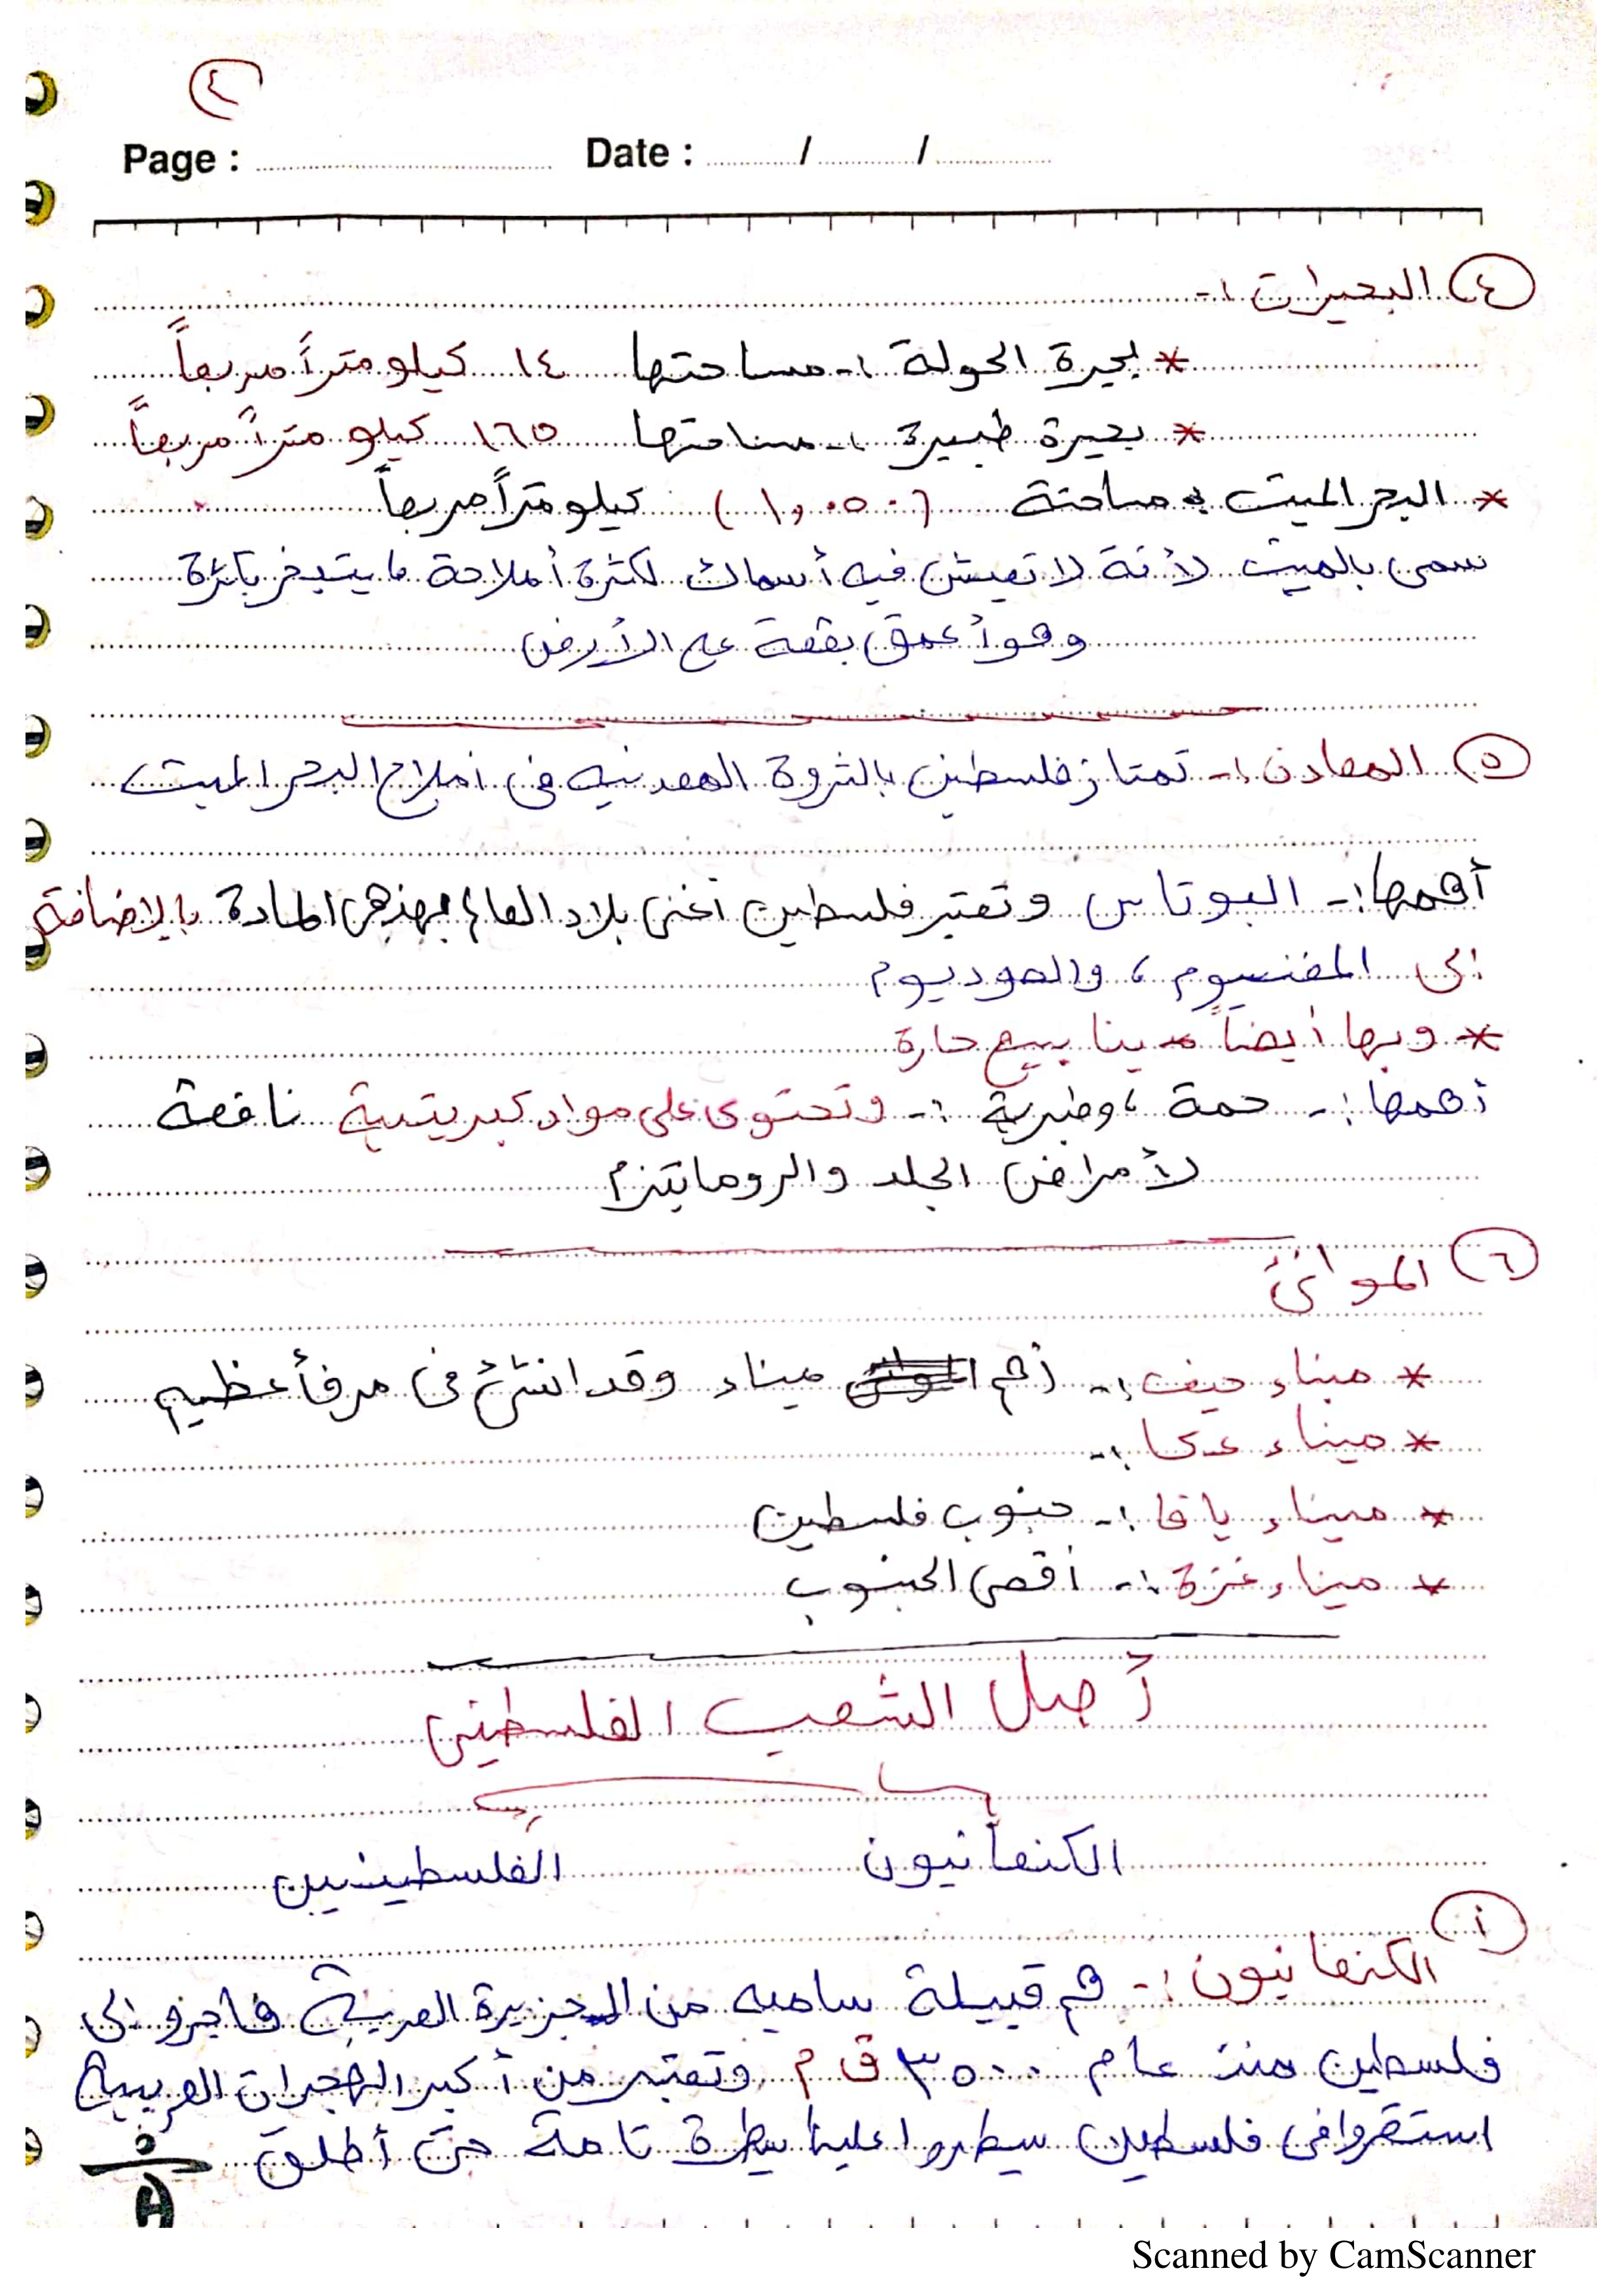 ٤
Page : Date : / /
٤ البحيرات :-
* بحيرة الحولة :- مساحتها ١٤ كيلو متراً مربعاً
* بحيرة طبرية :- مساحتها ١٦٥ كيلو متراً مربعاً
* البحر الميت : مساحتة (١,٠٥٠) كيلو متراً مربعاً
سمى بالميت لأنة لا تعيش فيه أسماك لكثرة أملاحة ما يتبخر بكثرة
وهو أعمق بقعة على الأرض
٥ المعادن :- تمتاز فلسطين بالثروة المعدنيه فى املاح البحر الميت
أهمها :- البوتاس وتعتبر فلسطين أغنى بلاد العالم بهذهى المادة بالإضافة
إلى المغنسيوم ، والصوديوم
* وبها أيضاً ينابيع حارة
أهمها :- حمة ، وطبرية :- وتحتوى على مواد كبريتية نافعة
لأمراض الجلد والروماتيزم
٦ الموانئ
* ميناء حيفا :- أهم ميناء وقد انشئ فى مرفأ عظيم
* ميناء عكا :-
* ميناء يافا :- جنوب فلسطين
* ميناء غزة :- أقصى الجنوب
أصل الشعب الفلسطينى
الكنعانيون الفلسطينيين
أ
الكنعانيون :- هم قبيلة ساميه من الجزيرة العربية هاجرو إلى
فلسطين منذ عام ٣٥٠٠ ق م وتعتبر من أكبر الهجرات العربية
استقروا فى فلسطين سيطروا عليها سيطرة تامة حتى أطلق
Scanned by CamScanner